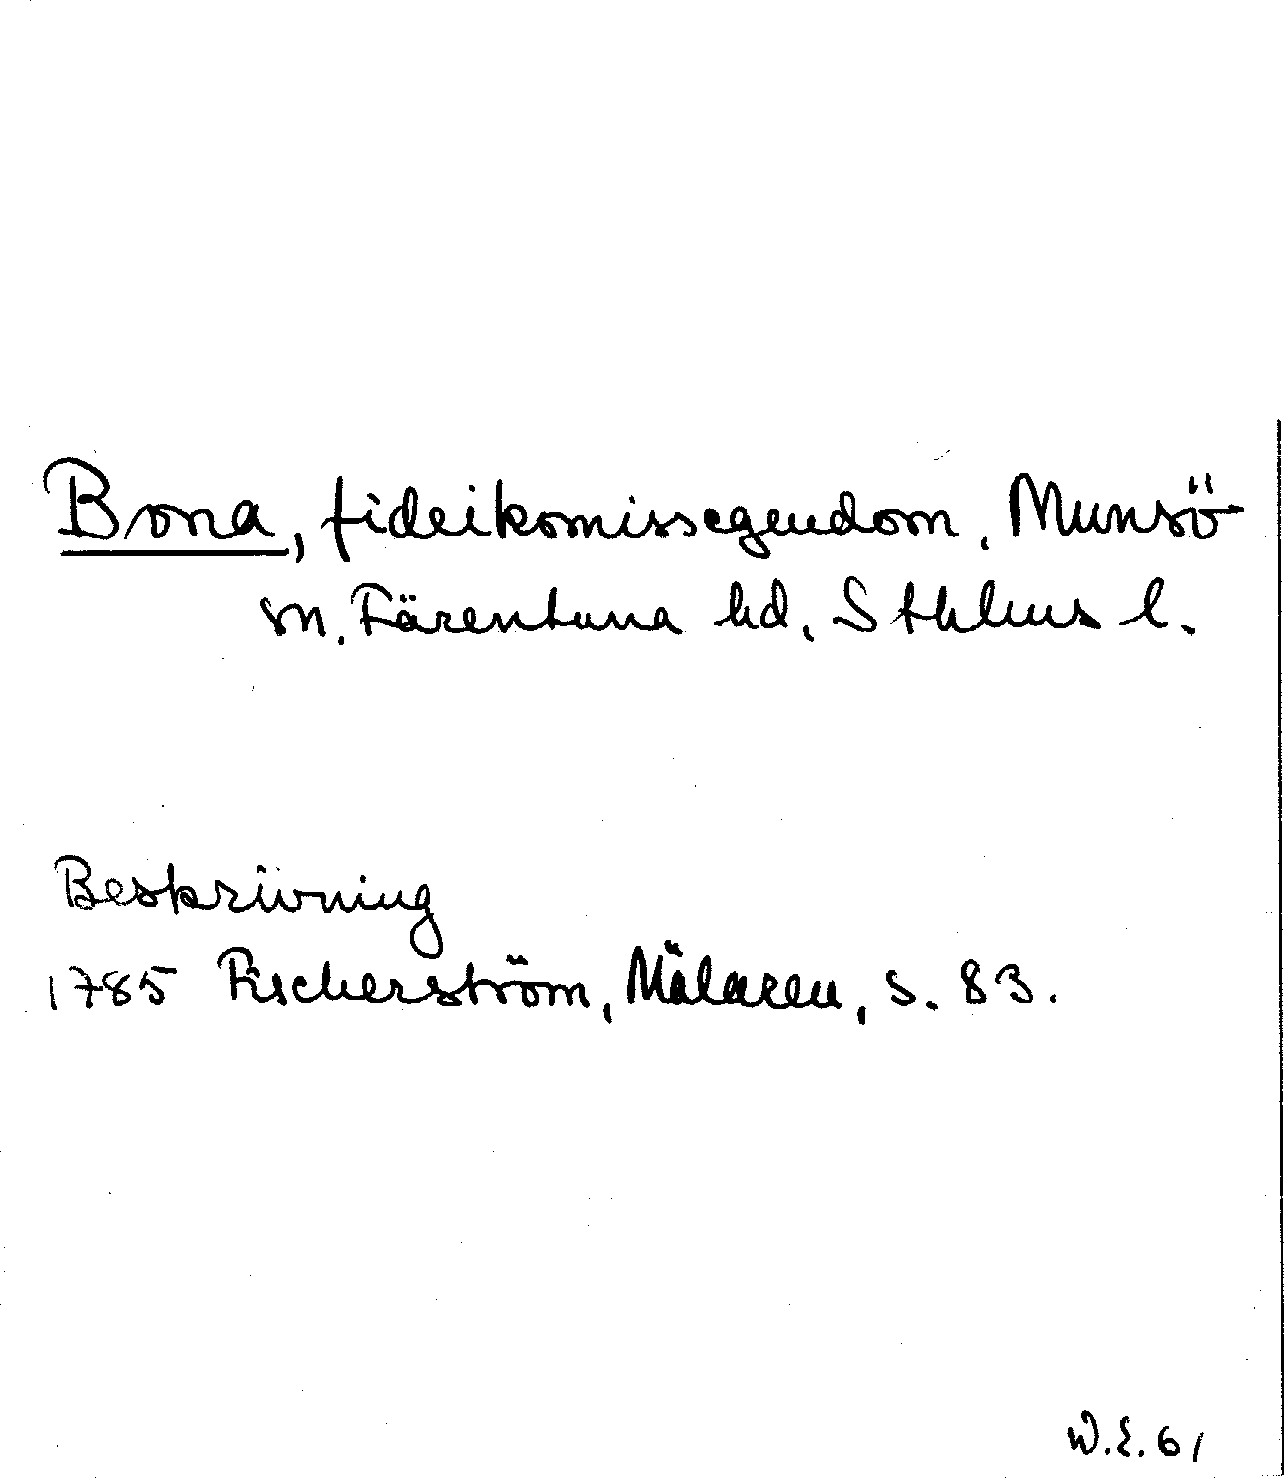 Bona, fideikomissegendom, Munsö
sn. Färentuna hd, Sthlms l.
Beskrivning
1785 Fischerström, Mälaren, s. 83.
W.E. 61